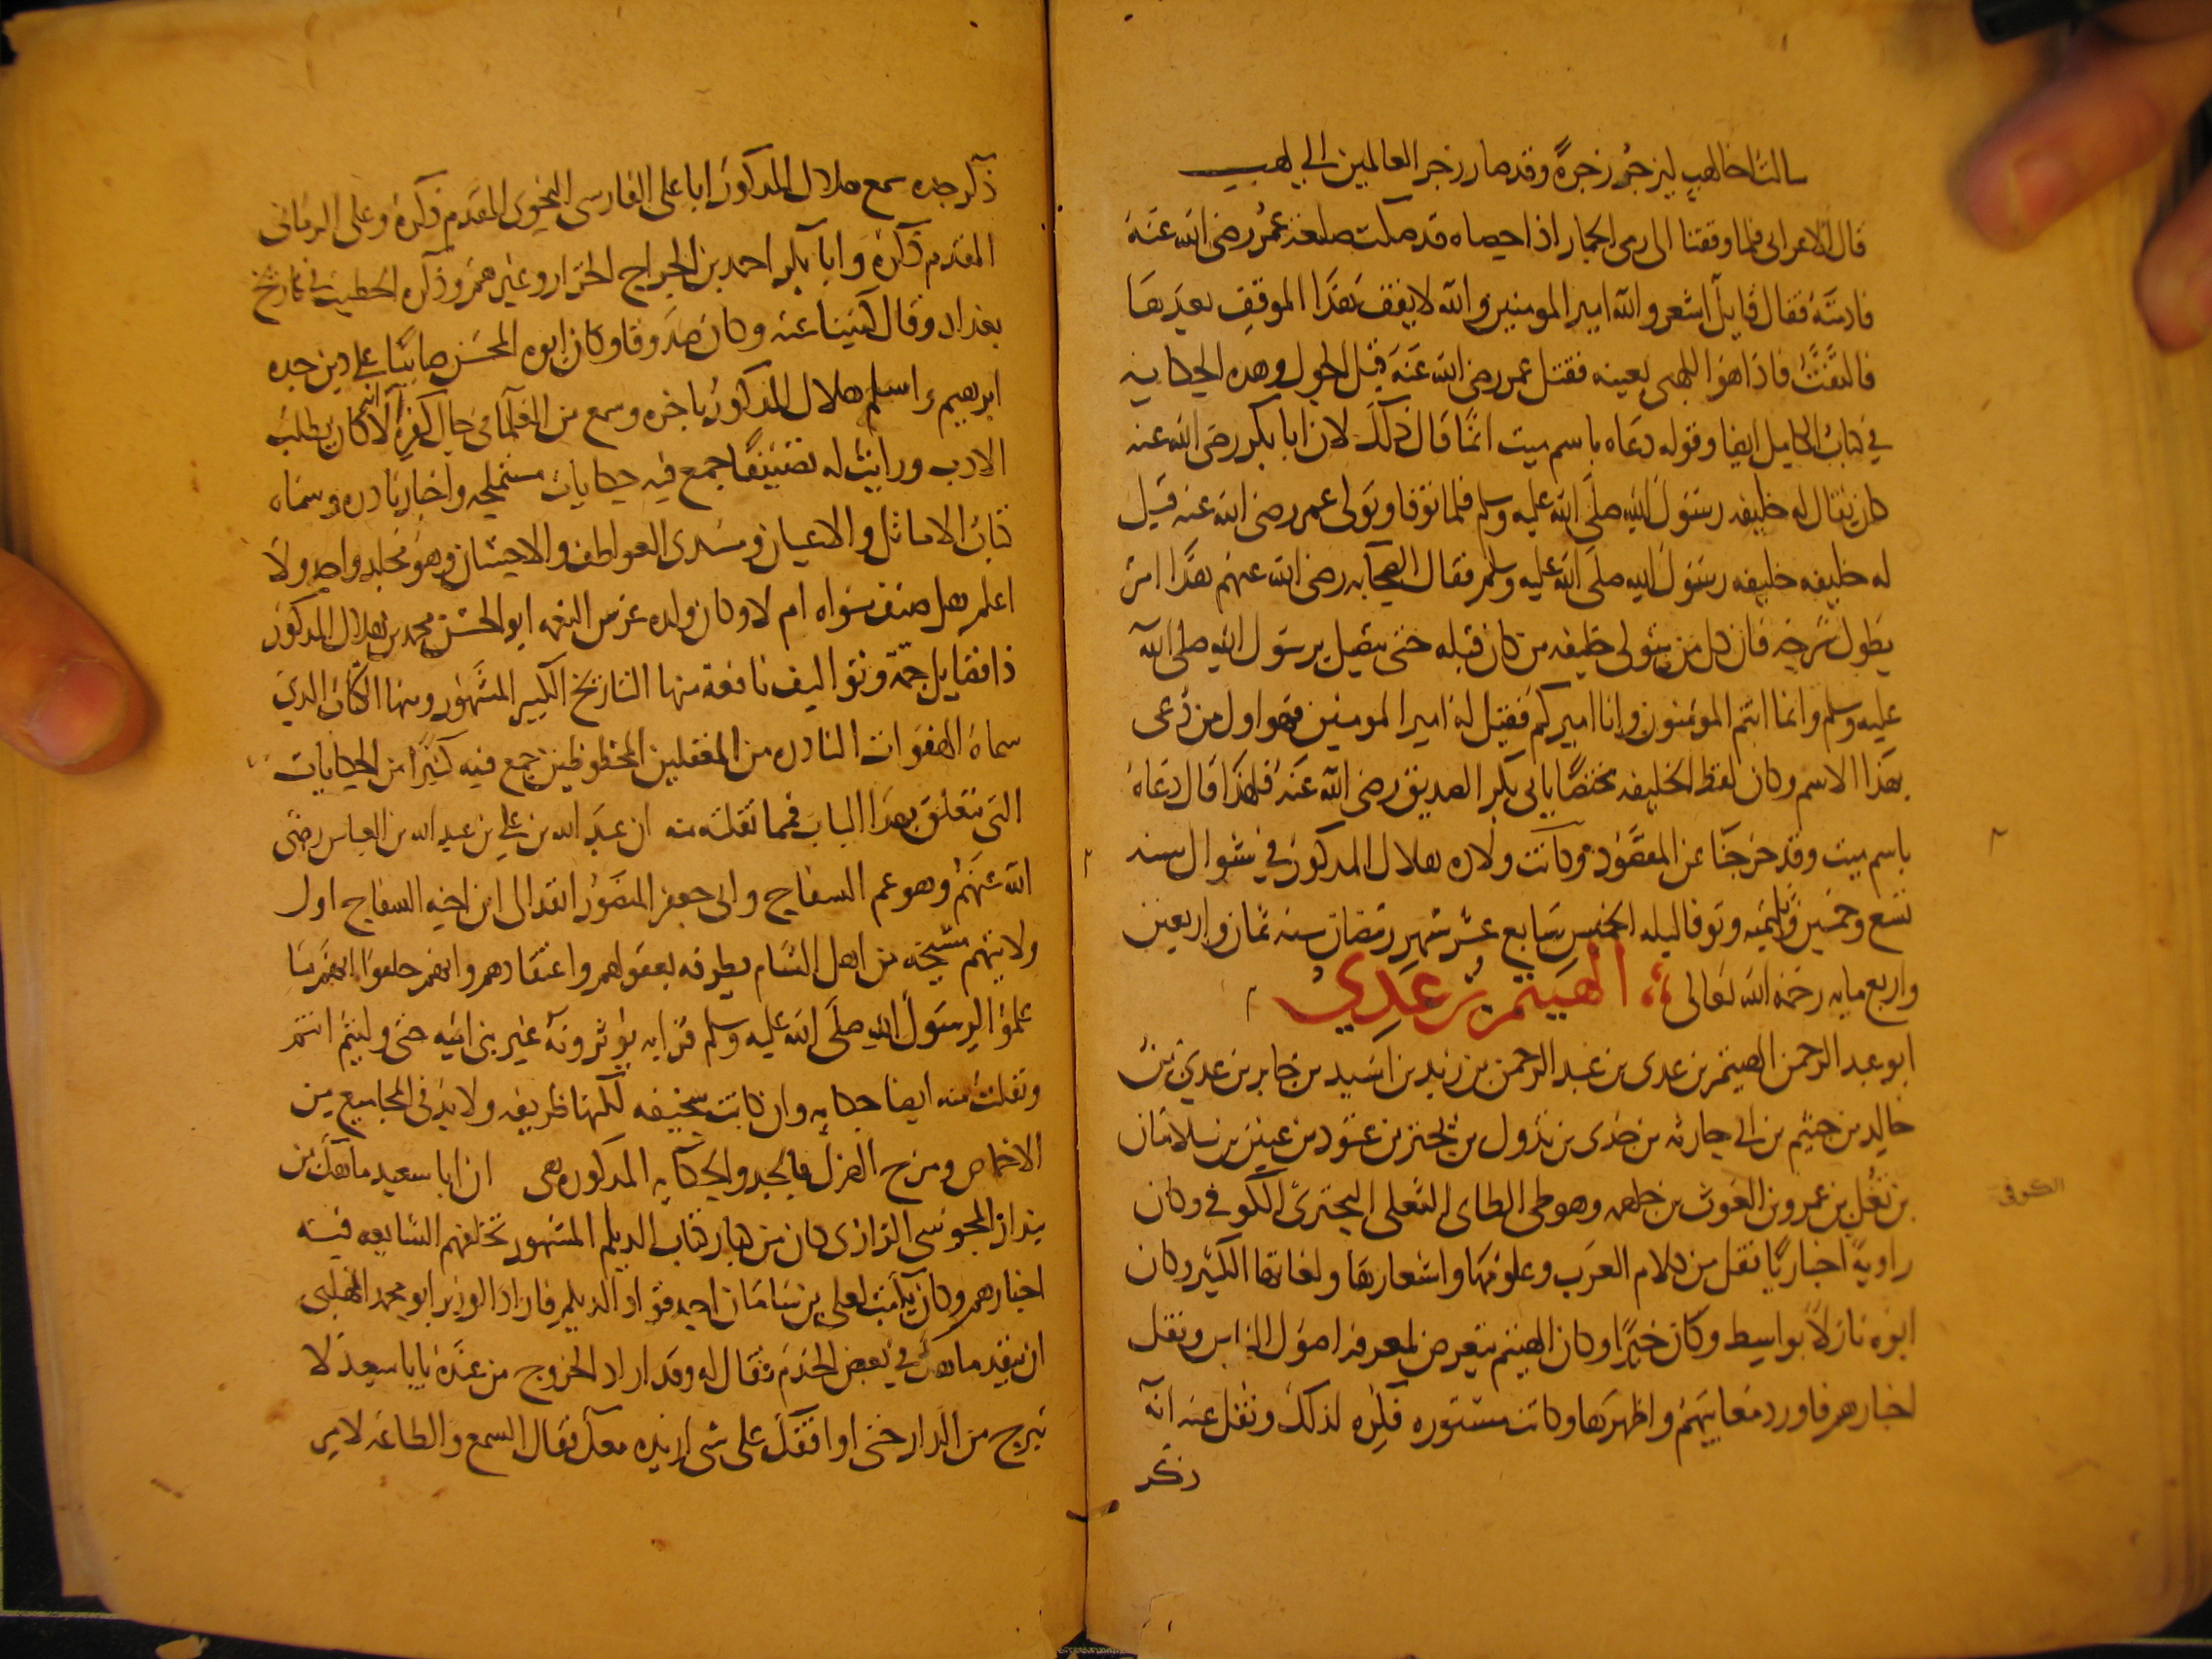 سالت اخا لهب ليزجر زجرةً وقد صار زجر العالمين الى لهب
قال الاعرابي فلما وقفنا الى رمي الجمار اذا حصاه قد صكت صلعة عمر رضي الله عنه
فادمته فقال قايل اشعر والله امير المومنين والله لا يقف هذا الموقف بعدها
فالتفت فاذا هو اللهبي بعينه فقتل عمر رضي الله عنه قبل الحول وهذه الحكاية
في كتاب الكامل ايضا وقوله دعاه باسم ميت انما قال ذلك لان ابا بكر رضي الله عنه
كان يقال له خليفه رسول الله صلى الله عليه وسلم فلما توفا وتولى عمر رضي الله عنه قيل
له خليفه خليفه رسول الله صلى الله عليه وسلم فقال الصحابه رضي الله عنهم هذا امر
يطول شرحه فان كل من يتولى خليفه من كان قبله حتى يتصل برسول الله صلى الله
عليه وسلم وانما انتم المومنون وانا اميركم فقيل له امير المومنين فهو اول من دعى
بهذا الاسم وكان لفظ الخليفه مختصا بابي بكر الصديق رضي الله عنه فلهذا قال دعاه
باسم ميت وقد خرجنا عن المقصود وكانت ولاده هلال المذكور في شوال سنه
تسع وخمسين وثلثميه وتوفا ليله الخميس سابع عشر شهر رمضان سنه ثمان واربعين
واربع مايه رحمه الله تعالى الهيثم بن عدي
ابو عبد الرحمن الهيثم بن عدى بن عبد الرحمن بن زيد بن اسيد بن جابر بن عدي بن
خالد بن خيثم بن ابي حارثه بن جدى بن تدول بن بحتر بن عتود بن عنين بن سلامان
بن ثعل بن عمرو بن الغوث بن جلهمه وهو طى الطاى الثعلى البحترى الكوفي وكان
الكوفى
راوية اخباريا نقل من كلام العرب وعلومها واشعارها ولغاتها الكثير وكان
ابوه نازلا بواسط وكان خيرا وكان الهيثم يتعرض لمعرفة اصول الناس ونقل
اخبارهم فاورد معايبهم واظهرها وكانت مستوره فكره لذلك ونقل عنه انه
ذكر
ذكر جده سمع هلال المذكور ابا على الفارسى النحوى المقدم ذكره وعلى الرمانى
المقدم ذكره وابا بكر احمد بن الجراح الخزار وغيرهم وذكره الخطيب في تاريخ
بغداد وقال كتبنا عنه وكان صدوقا وكان ابوه المحسن صابيا على دين جده
ابرهيم واسلم هلال المذكور باخره وسمع من العلما في حال كفره لانه كان يطلب
الادب ورايت له تصنيفا جمع فيه حكايات مستملحه واخبار نادره وسماه
كتاب الاماثل والاعيان ومسدى العواطف والاحسان وهو مجلد واحد ولا
اعلم هل صنف سواه ام لا وكان ولده غرس النعمه ابو الحسن محمد بن هلال المذكور
ذا فضايل جمة وتواليف نافعة منها التاريخ الكبير المشهور ومنها الكتاب الذي
سماه الهفوات النادره من المغفلين المحظوظين جمع فيه كثيرا من الحكايات
التى تتعلق بهذا الباب فمما نقلته منه ان عبد الله بن علي بن عبد الله بن العباس رضى
الله عنهم وهو عم السفاح وابى جعفر المنصور انفد الى ابن اخيه السفاح اول
ولايتهم مشيخه من اهل الشام يطرفه بعقولهم واعتقادهم وانهم حلفوا انهم ما
علموا لرسول الله صلى الله عليه وسلم قرابه يورثونه غير بنى اميه حتى وليتم انتم
ونقلت منه ايضا حكايه وان كانت سخيفه لكنها ظريفه ولا بد فى المجاميع من
الاحماض ومزج الهزل بالجد والحكايه المذكوره هى ان ابا سعيد ماهك بن
بندار المجوسى الرازى كان من كبار كتاب الديلم المشهور تخلفهم الشايعه فيه
اخبارهم وكان يكتب لعلى بن سامان احد قواد الديلم فاراد الوزير ابو محمد المهلبى
ان ينفد ماهك في بعض الخدم فقال له وقد اراد الخروج من عنده يابا سعيد لا
تبرح من الدار حتى اوافقك على شى اريده معك فقال السمع والطاعه لامر